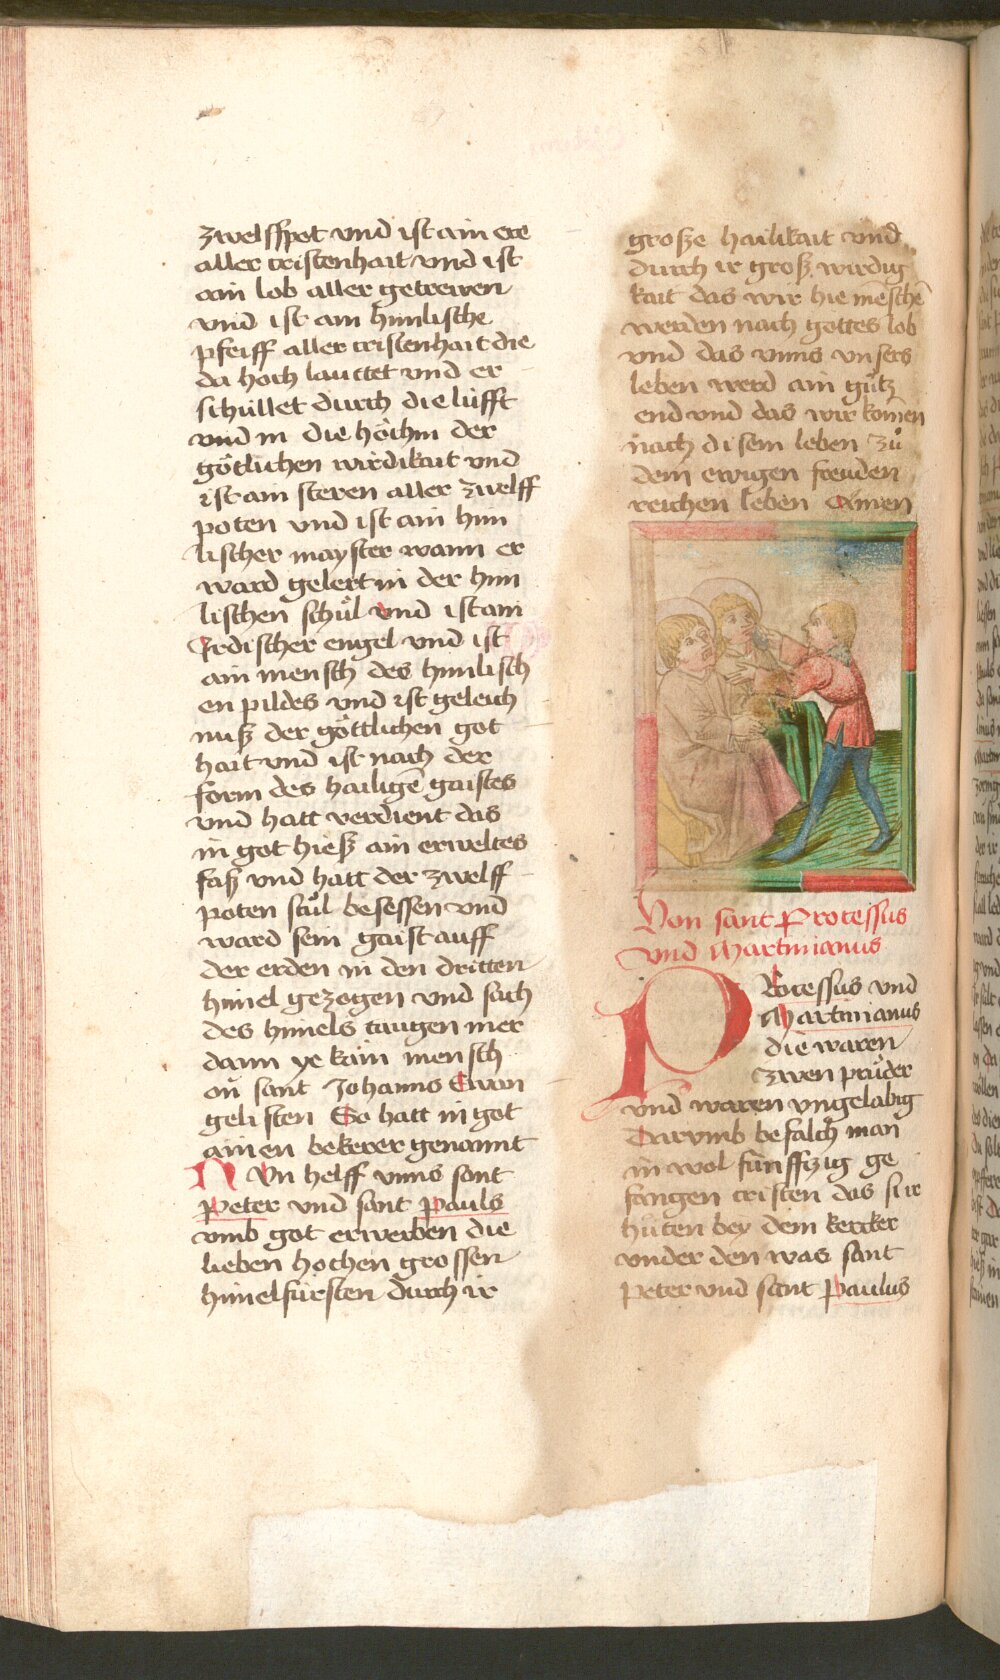 zwelffpot vnd ist ain ere
aller cristenhait vnd ist
ain lob aller getrewen
vnd ist ain himlische
pfeiff aller cristenhait die
da hoch lauttet vnd er
schüllet durch die lüfft
vnd in die höchin der
götlichen wirdikait vnd
ist ain steren aller zwelff
poten vnd ist ain him
lischer mayster wann er
ward gelert in der him
lischen schůl vnd ist ain
Irdischer engel vnd ist
ain mensch des himlisch
en pildes vnd ist geleich
nuß der göttlichen got
hait vnd ist nach der
form des hailigē gaistes
vnd hatt verdient das
in got hieß ain erweltes
faß vnd hatt der zwelff
poten stůl besessen vnd
ward sein gaist auff
der erden in den dritten
himel gezogen vnd sach
des himels taugen mer
dann ye kain mensch
on sant Johanns Ewan
gelisten So hatt in got
ainen bekerer genannt
Nvn helff vnns sant
Peter vnd sant Pauls
vmb got erwerben die
lieben hochen grossen
himelfürsten durch ir
große hailikait vnd
durch ir groß wirdig
kait das wir hie mēschē
werden nach gottes lob
vnd das vnns vnsers
leben werd ain gůtz
end vnd das wir komen
nach disem leben zů
dem ewigen freuden
reichen leben Amen
Von sant Processus
vnd Martinianus
PRocessus vnd
Martinianus
die waren
zwen průder
vnd waren vngelabig
Darvmb befalch man
in wol fünffzig ge
fangen cristen das si ir
hůten bey dem kercker
vnder den was sant
Peter vnd sant Paulus